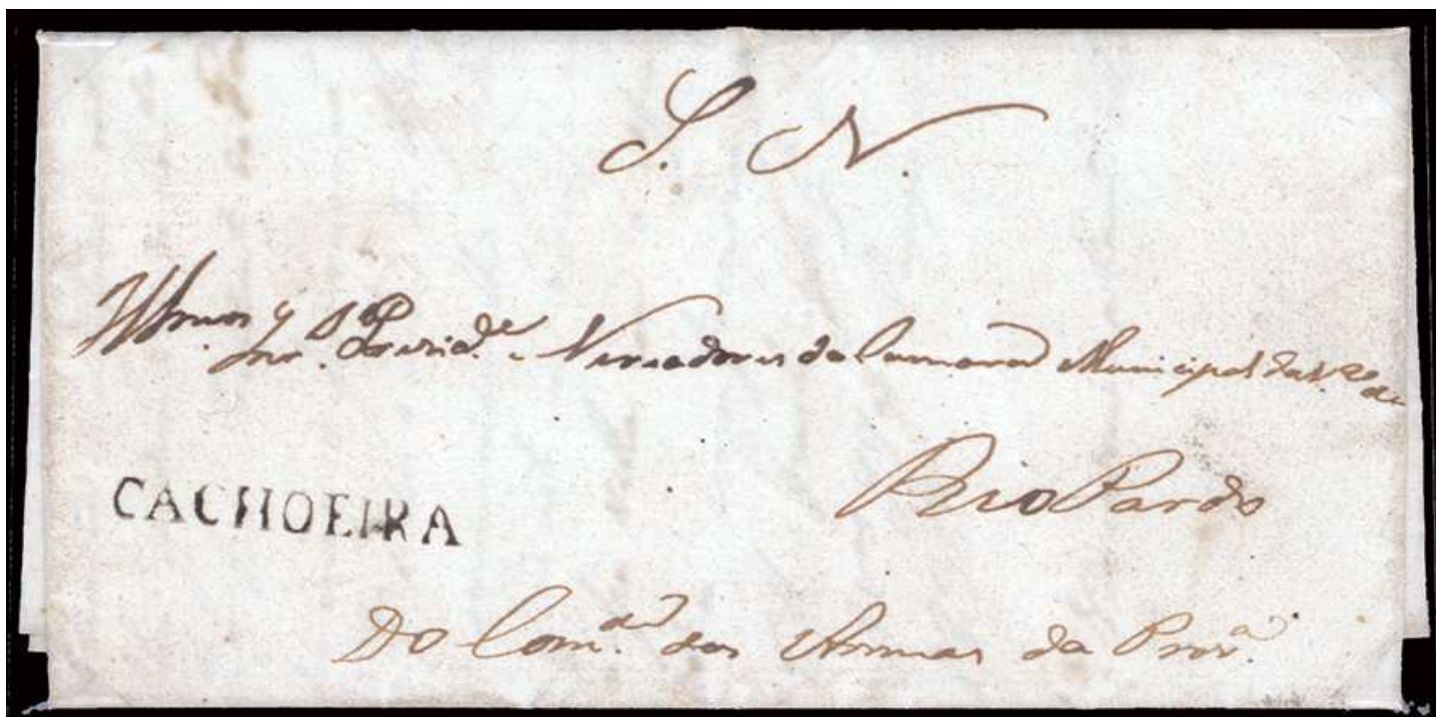 S. N.
Illmos Snr.es Presid.e e Vereadores da Camara Municipal da V.a de
Rio Pardo
CACHOEIRA
Do Com.de das Armas da Prov.a